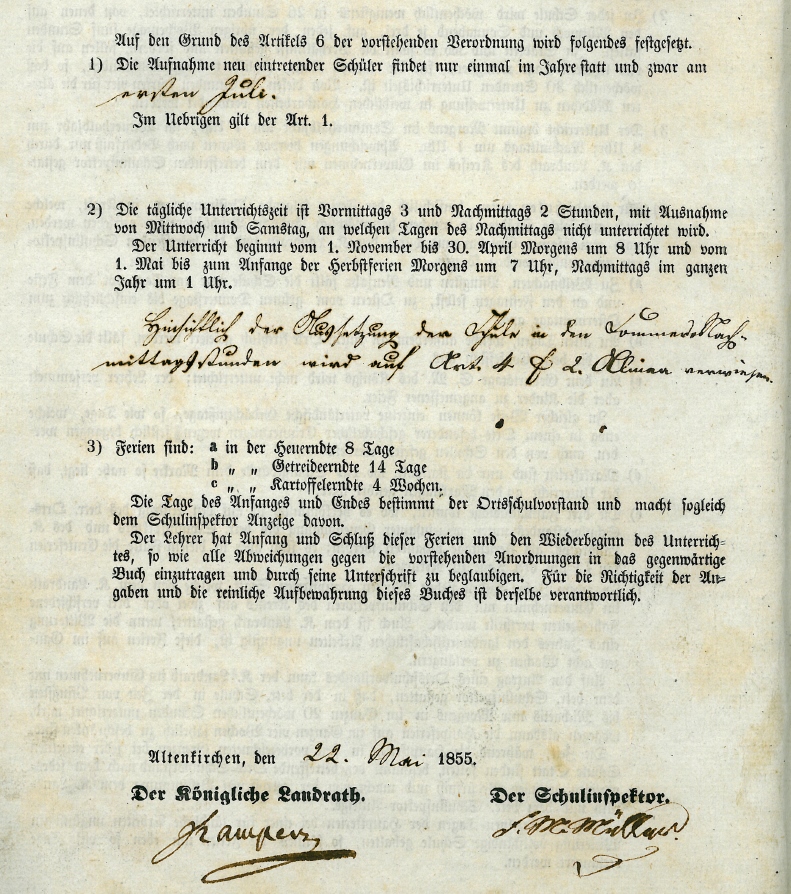 Auf den Grund des Artikels 6 der vorstehenden Verordnung wird folgendes festgesetzt.
1) Die Aufnahme neu eintretender Schüler findet nur einmal im Jahre statt und zwar am
ersten Juli.
Im Uebrigen gilt der Art. 1.
2) Die tägliche Unterrichtszeit ist Vormittags 3 und Nachmittags 2 Stunden, mit Ausnahme
von Mittwoch und Samstag, an welchen Tagen des Nachmittags nicht unterrichtet wird.
Der Unterricht beginnt vom 1. November bis 30. April Morgens um 8 Uhr und vom
1. Mai bis zum Anfange der Herbstferien Morgens um 7 Uhr, Nachmittags im ganzen
Jahr um 1 Uhr.
Hinsichtlich der Aussetzung der Schule in den Sommer-Nach-
mittagsstunden wird auf Art. 4 2. Alinea verwiesen.
3) Ferien sind: a in der Heuerndte 8 Tage
b „ „ Getreideerndte 14 Tage
c „ „ Kartoffelerndte 4 Wochen.
Die Tage des Anfanges und Endes bestimmt der Ortsschulvorstand und macht sogleich
dem Schulinspektor Anzeige davon.
Der Lehrer hat Anfang und Schluß dieser Ferien und den Wiederbeginn des Unterrich-
tes, so wie alle Abweichungen gegen die vorstehenden Anordnungen in das gegenwärtige
Buch einzutragen und durch seine Unterschrift zu beglaubigen. Für die Richtigkeit der An-
gaben und die reinliche Aufbewahrung dieses Buches ist derselbe verantwortlich.
Altenkirchen, den 22. Mai 1855.
Der Königliche Landrath. Der Schulinspektor.
Müller